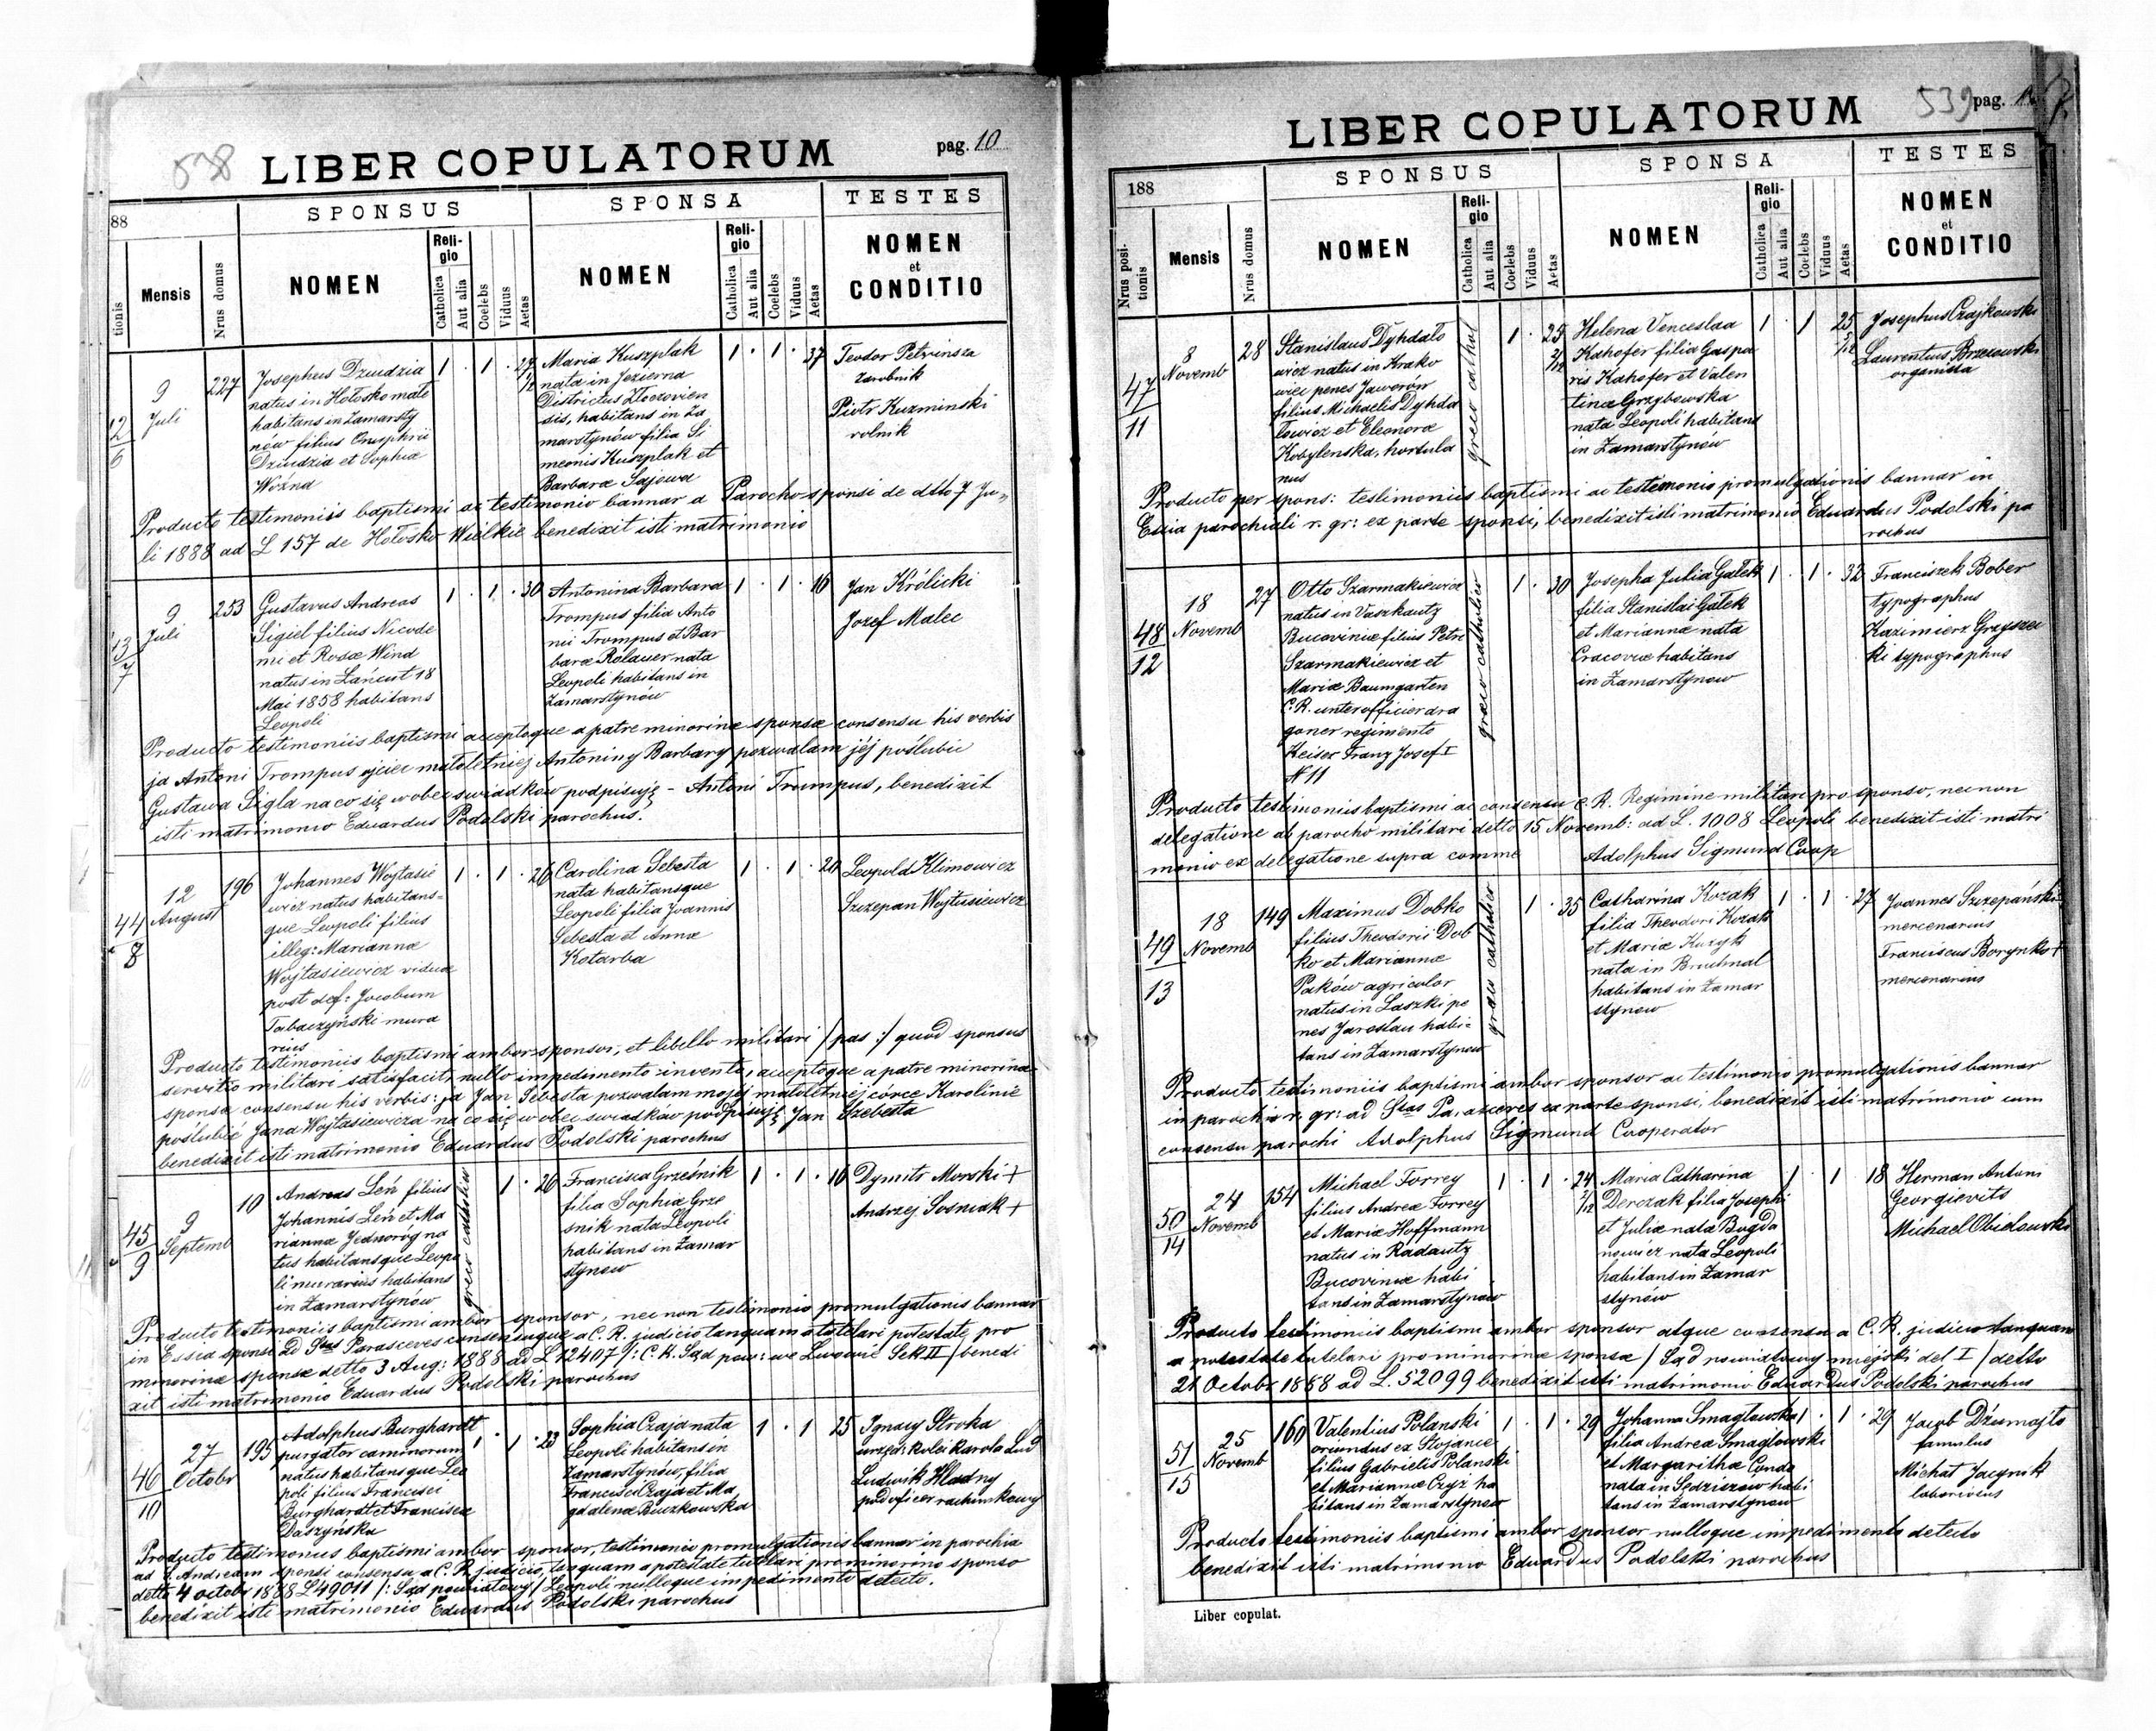 538
LIBER COPULATORUM
pag. 10
88
SPONSUS
SPONSA
TESTES
tionis
Mensis
Nrus domus
NOMEN
Religio
Catholica
Aut alia
Coelebs
Viduus
Aetas
NOMEN
Religio
Catholica
Aut alia
Coelebs
Viduus
Aetas
NOMEN
et
CONDITIO
12
6
9
Juli
227
Josephus Dziudzia
natus in Hołosko małe
habitans in Zamarsty
nów filius Onuphrii
Dziudzia et Sophiæ
Woźna
1 . 1 . 27
1/12
Maria Kuszplak
nata in Jezierna
Districtus Złoczovien
sis, habitans in Za
marstynów filia Si
meonis Kuszplak et
Barbaræ Sajowa
1 . 1 . 37
Teodor Petrinsza
zarobnik
Piotr Kuzminski
rolnik
Producto testimoniis baptismi ac testimonio bannar a Parocho sponsi de dtto 7 Ju„
li 1888 ad L 157 de Hołosko Wielkie benedixit isti matrimonio
13
7
9
Juli
253
Gustavus Andreas
Sigiel filius Nicode
mi et Rosæ Wind
natus in Łańcut 18
Mai 1858 habitans
Leopoli
1 . 1 . 30
Antonina Barbara
Trompus filia Anto
nii Trompus et Bar
baræ Rolauer nata
Leopoli habitans in
Zamarstynów
1 . 1 . 16
Jan Królicki
Jozef Malec
Producto testimoniis baptismi acceptoque a patre minorinæ sponsæ consensu his verbis
ja Antoni Trompus ojciec małoletniej Antoniny Barbary pozwalam jéj poślubić
Gustawa Sigla na co się wobec swiadków podpisuję - Antoni Trompus, benedixit
isti matrimonio Eduardus Podolski parochus.
44
8
12
August
196
Johannes Wojtasie
wicz natus habitans=
que Leopoli filius
illeg: Mariannæ
Wojtasiewicz viduæ
post def: Jacobum
Tabaczyński mura
rius
1 . 1 . 26
Carolina Sebesta
nata habitansque
Leopoli filia Joannis
Sebesta et Annæ
Kotarba
1 . 1 . 20
Leopold Klimowicz
Szczepan Wojtasiewicz
Producto testimoniis baptismi ambor sponsor, et libello militari /pas:/ quod sponsus
servitio militari satisfacit, nullo impedimento invento, acceptoque a patre minorinæ
sponsæ consensu his verbis: ja Jan Sebesta pozwalam mojej małoletniej córce Karolinie
poślubić Jana Wojtasiewicza na co się w obec swiadków podpisuję Jan Szebesta
benedixit isti matrimonio Eduardus Podolski parochus
45
9
9
Septemb
10
Andreas Leń filius
Johannis Leń et Ma
riannæ Jednoróg na
tus habitansque Leopo
li murarius habitans
in Zamarstynów
græco catholica
1 . 26
Francisca Grześnik
filia Sophiæ Grze
snik nata Leopoli
habitans in Zamar
stynow
1 . 1 . 16
Dymitr Morski +
Andrzej Sosniak +
Producto testimoniis baptismi ambor sponsor, nec non testimonio promulgationis bannar
in Essia sponsi ad Stas Parasceves consensuque a C. R. judicio tanquam a tutelari potestate pro
minorinæ sponsæ detto 3 Aug: 1888 ad L 12407 /: C. K. Sąd pow: we Lwowie Sek II/ benedi
xit isti matrimonio Eduardus Podolski parochus
46
10
27
Octobr
195
Adolphus Burghardt
purgator caminorum
natus habitansque Leo
poli filius Francisci
Burghardt et Francisca
Daszyńska
1 . 1 . 23
Sophia Czaja nata
Leopoli habitans in
Zamarstynów, filia
Francisci Czaja et Ma
gdalena Buszkowska
1 . 1 25
Ignacy Stroka
urzęd: kolei Karola Lud
Ludwik Hladny
podoficer rachunkowy
Producto testimoniis baptismi ambor sponsor, testimonio promulgationis bannar in parochia
ad S. Andream sponsi consensu a C. R. judicio, tanquam a potestate tutelari pro minorino sponso
detto 4 octobr 1888 L 49011 /: Sąd powiatowy/ Leopoli nulloque impedimento detecto.
benedixit isti matrimonio Eduardus Podolski parochus
539
LIBER COPULATORUM
pag.
188
SPONSUS
SPONSA
TESTES
Nrus positionis
Mensis
Nrus domus
NOMEN
Religio
Catholica
Aut alia
Coelebs
Viduus
Aetas
NOMEN
Religio
Catholica
Aut alia
Coelebs
Viduus
Aetas
NOMEN
et
CONDITIO
47
11
8
Novemb
28
Stanislaus Dyhdalo
wicz natus in Krako
wiec penes Jaworow
filius Michaelis Dyhda
lowicz et Eleonoræ
Kobylenska, hortula
nus
græco cathol
1 . 25
2/12
Helena Venceslaa
Kahofer filia Gaspa
ris Kahofer et Valen
tinæ Grzybowska
nata Leopoli habitans
in Zamarstynów
1 . 1 25
5/12
Josephus Czajkowski
Laurentius Brzezowski
organista
Producto per spons: testimoniis baptismi ac testimonio promulgationis bannar in
Essia parochiali r. gr: ex parte sponsi, benedixit isti matrimonio Eduardus Podolski pa
rochus
48
12
18
Novemb
27
Otto Szarmakiewicz
natus in Vaszkautz
Bucovinæ filius Petri
Szarmakiewicz et
Mariæ Baumgarten
C. R. unterofficier dra
goner regimento
Keiser Franz Josef I
N 11
græco catholico
1 . 30
Josepha Julia Gałek
filia Stanislai Gałek
et Mariannæ nata
Cracoviæ habitans
in Zamarstynow
1 . 1 . 32
Franciszek Bober
typographus
Kazimierz
ki typographus
Producto testimoniis baptismi ac consensu C. R. Regimine militari pro sponso, nec non
delegatione ab parocho militari detto 15 Novemb: ad L. 1008 Leopoli benedixit isti matri
monio ex delegatione supra comme Adolphus Sigmund Coop
49
13
18
Novemb
149
Maximus Dobko
filius Theodorii Dob
ko et Mariannæ
Paków agricolor
natus in Laszki pe
nes Jaroslau habi=
tans in Zamarstynow
græco catholico
1 . 35
Catharina Kozak
filia Theodori Kozak
et Mariæ Kuzyk
nata in Bruchnal
habitans in Zamar
stynow
1 . 1 . 27
Joannes Szczepański
mercenarius
Franciscus Borynko +
mercenarius
Producto testimoniis baptismi ambor sponsor ac testimonio promulgationis bannar
in parochia r. gr: ad Stas ex parte sponsi, benedixit isti matrimonio cum
consensu parochi Adolphus Sigmund Cooperator
50
14
24
Novemb
154
Michael Forrey
filius Andreæ Forrey
et Mariæ Hoffmann
natus in Radautz
Bucovinæ habi
tans in Zamarstynow
1 . 1 . 24
2/12
Maria Catharina
Derczak filia Josephi
et Juliæ nata Bogda
nowicz nata Leopoli
habitans in Zamar
stynów
1 . 1 18
Herman Antoni
Georgievits
Michael Obidowski
Producto testimoniis baptismi ambor sponsor atque consensu a C. R. judicio tanquam
a potestate tutelari pro minorinæ sponsæ / Sąd powiatowy miejski del I / detto
21 Octobr 1888 ad L. 52099 benedixit isti matrimonio Eduardus Podolski parochus
51
15
25
Novemb
160
Valentius Polanski
oriundus ex Stojance
filius Gabrielis Polanski
et Mariannæ Czyż ha
bitans in Zamarstynow
1 . 1 . 29
Johanna Smagłowska
filia Andreæ Smaglowski
et Margarithæ Conda
nata in Sędziszow habi
tans in Zamarstynow
1 . 1 . 29
Jacob
famulus
Michał Jacynik
laboriosus
Producto testimoniis baptismi ambor sponsor nulloque impedimento detecto
benedixit isti matrimonio Eduardus Podolski parochus
Liber copulat.